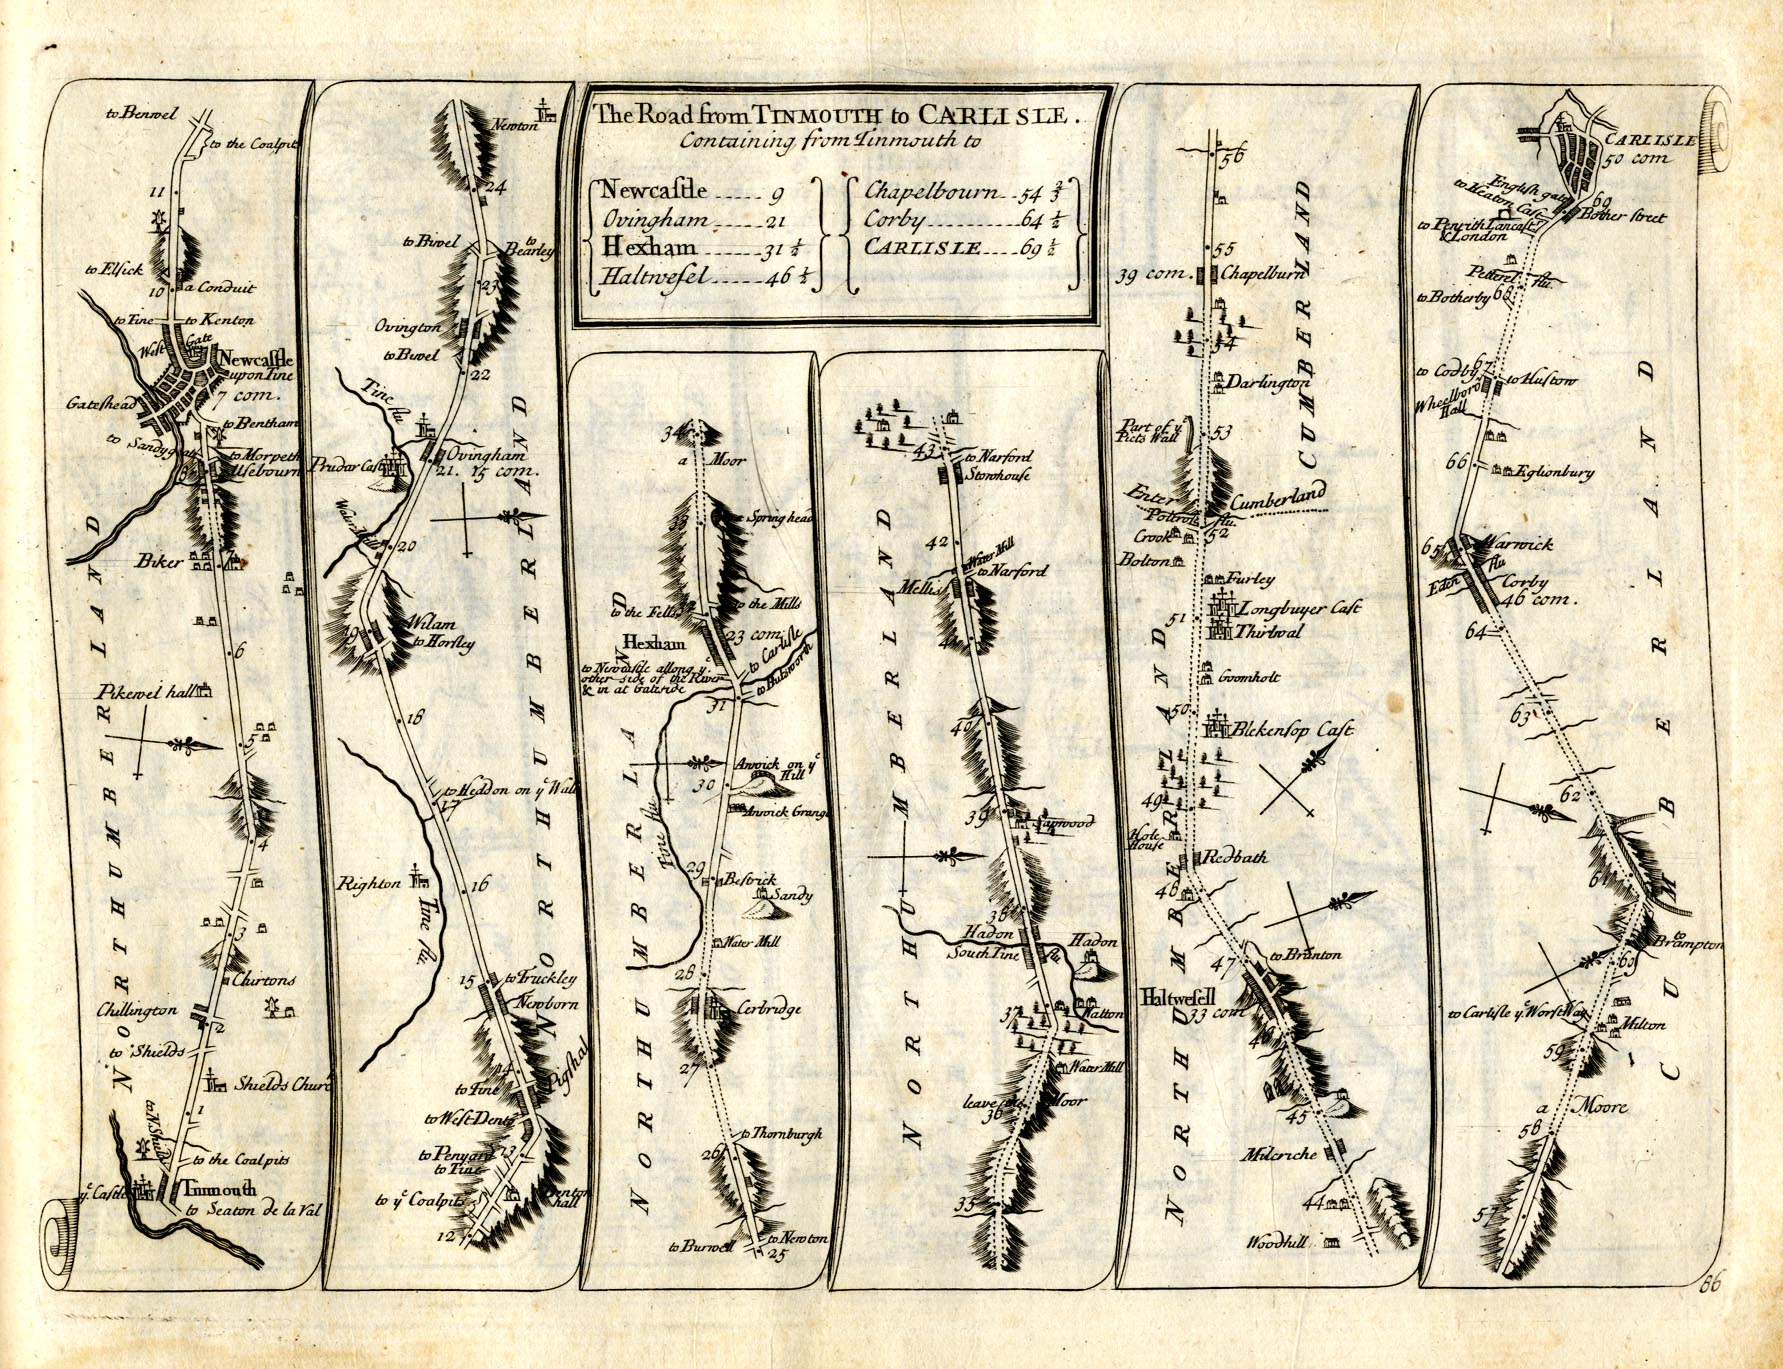 The Road from TINMOUTH to CARLISLE.
Containing from Tinmouth to
Newcastle ...... 9
Ovingham ...... 21
Hexham ...... 31 ½
Haltwesel ...... 46 ½
Chapelbourn .. 54 ⅔
Corby .......... 64 ½
CARLISLE .... 69 ½
to Benwel
to the Coalpit
11
to Elsick
10
a Conduit
to Tine
to Kenton
West
Gate
Newcastle
upon Tine
7 com.
Gateshead
to Bentham
to Sandygate
to Morpeth
Usebourn
8
Biker
7
6
Pikewel hall
5
4
3
Chirtons
Chillington
2
to Shields
Shields Church
1
to N. Shields
to the Coalpits
ye. Castle
Tinmouth
to Seaton de la Val
NORTHUMBERLAND
Newton
24
to Biwel
to
Bearley
23
Ovington
to Biwel
22
Tine flu
Ovingham
21. 15 com.
Prudar Cast
Water Mills
20
19
Wilam
to Horsley
18
to Heddon on ye Wall
17
Righton
16
Tine flu.
15
to Truckley
Newborn
14
to Tine
Pigshal
to West Denton
to Penyard
13
to Tine
to ye Coalpits
Denton
hall
12
NORTHUMBERLAND
34
a Moor
33
Spring head
to the Fells
32
to the Mills
23 com
Hexham
to Carlisle
to Newcastle allong ye.
other side of the River
& in at Gateside
31
Anwick on ye
Hill
30
Anwick Grange
Tine flu.
29
Bestrick
Sandy
Water Mill
28
Corbridge
27
to Thornburgh
26
to Burwell
to Newton
25
NORTHUMBERLAND
43
to Narford
Storohouse
42
Water Mill
to Narford
Mellis
41
40
39
Sapwood
38
Hadon
South Tine
flu
Hadon
37
Watton
Water Mill
leave the Moor
36
35
NORTHUMBERLAND
56
55
39 com.
Chapelburn
54
Darlington
Part of ye.
Picts Wall
53
Enter
Cumberland
Poltross flu.
Crook
52
Bolton
Furley
Longbuyer Cast
51
Thirlwal
Goomholt
50
Blekensop Cast
49
Hole
House
Redbath
48
to Branton
47
Haltwesell
33 com
46
45
Milcriche
44
Woodhill
CUMBERLAND
NORTHUMBERLAND
CARLISLE
50 com
English gate
to Heaton Cast
69
Bother street
to Penrith Lancaster
& London
Petterel flu.
to Botherby
68
to Codby
67
to Hustow
Wheelboro
Hall
66
Eglionbury
65
Warwick
Eden flu
Corby
46 com.
64
63
62
61
to
Brampton
60
to Carlisle ye Worst Way
Milton
59
a Moore
58
57
CUMBERLAND
86